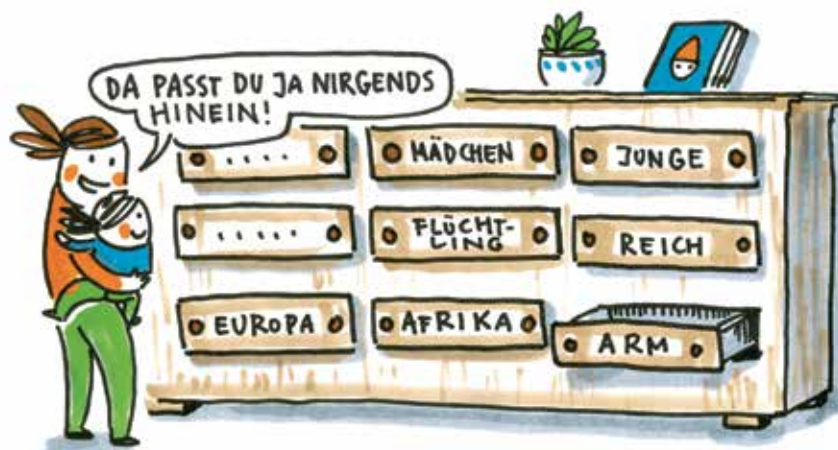 DA PASST DU JA NIRGENDS
HINEIN!
.... MÄDCHEN JUNGE
..... FLÜCHT-
LING REICH
EUROPA AFRIKA ARM